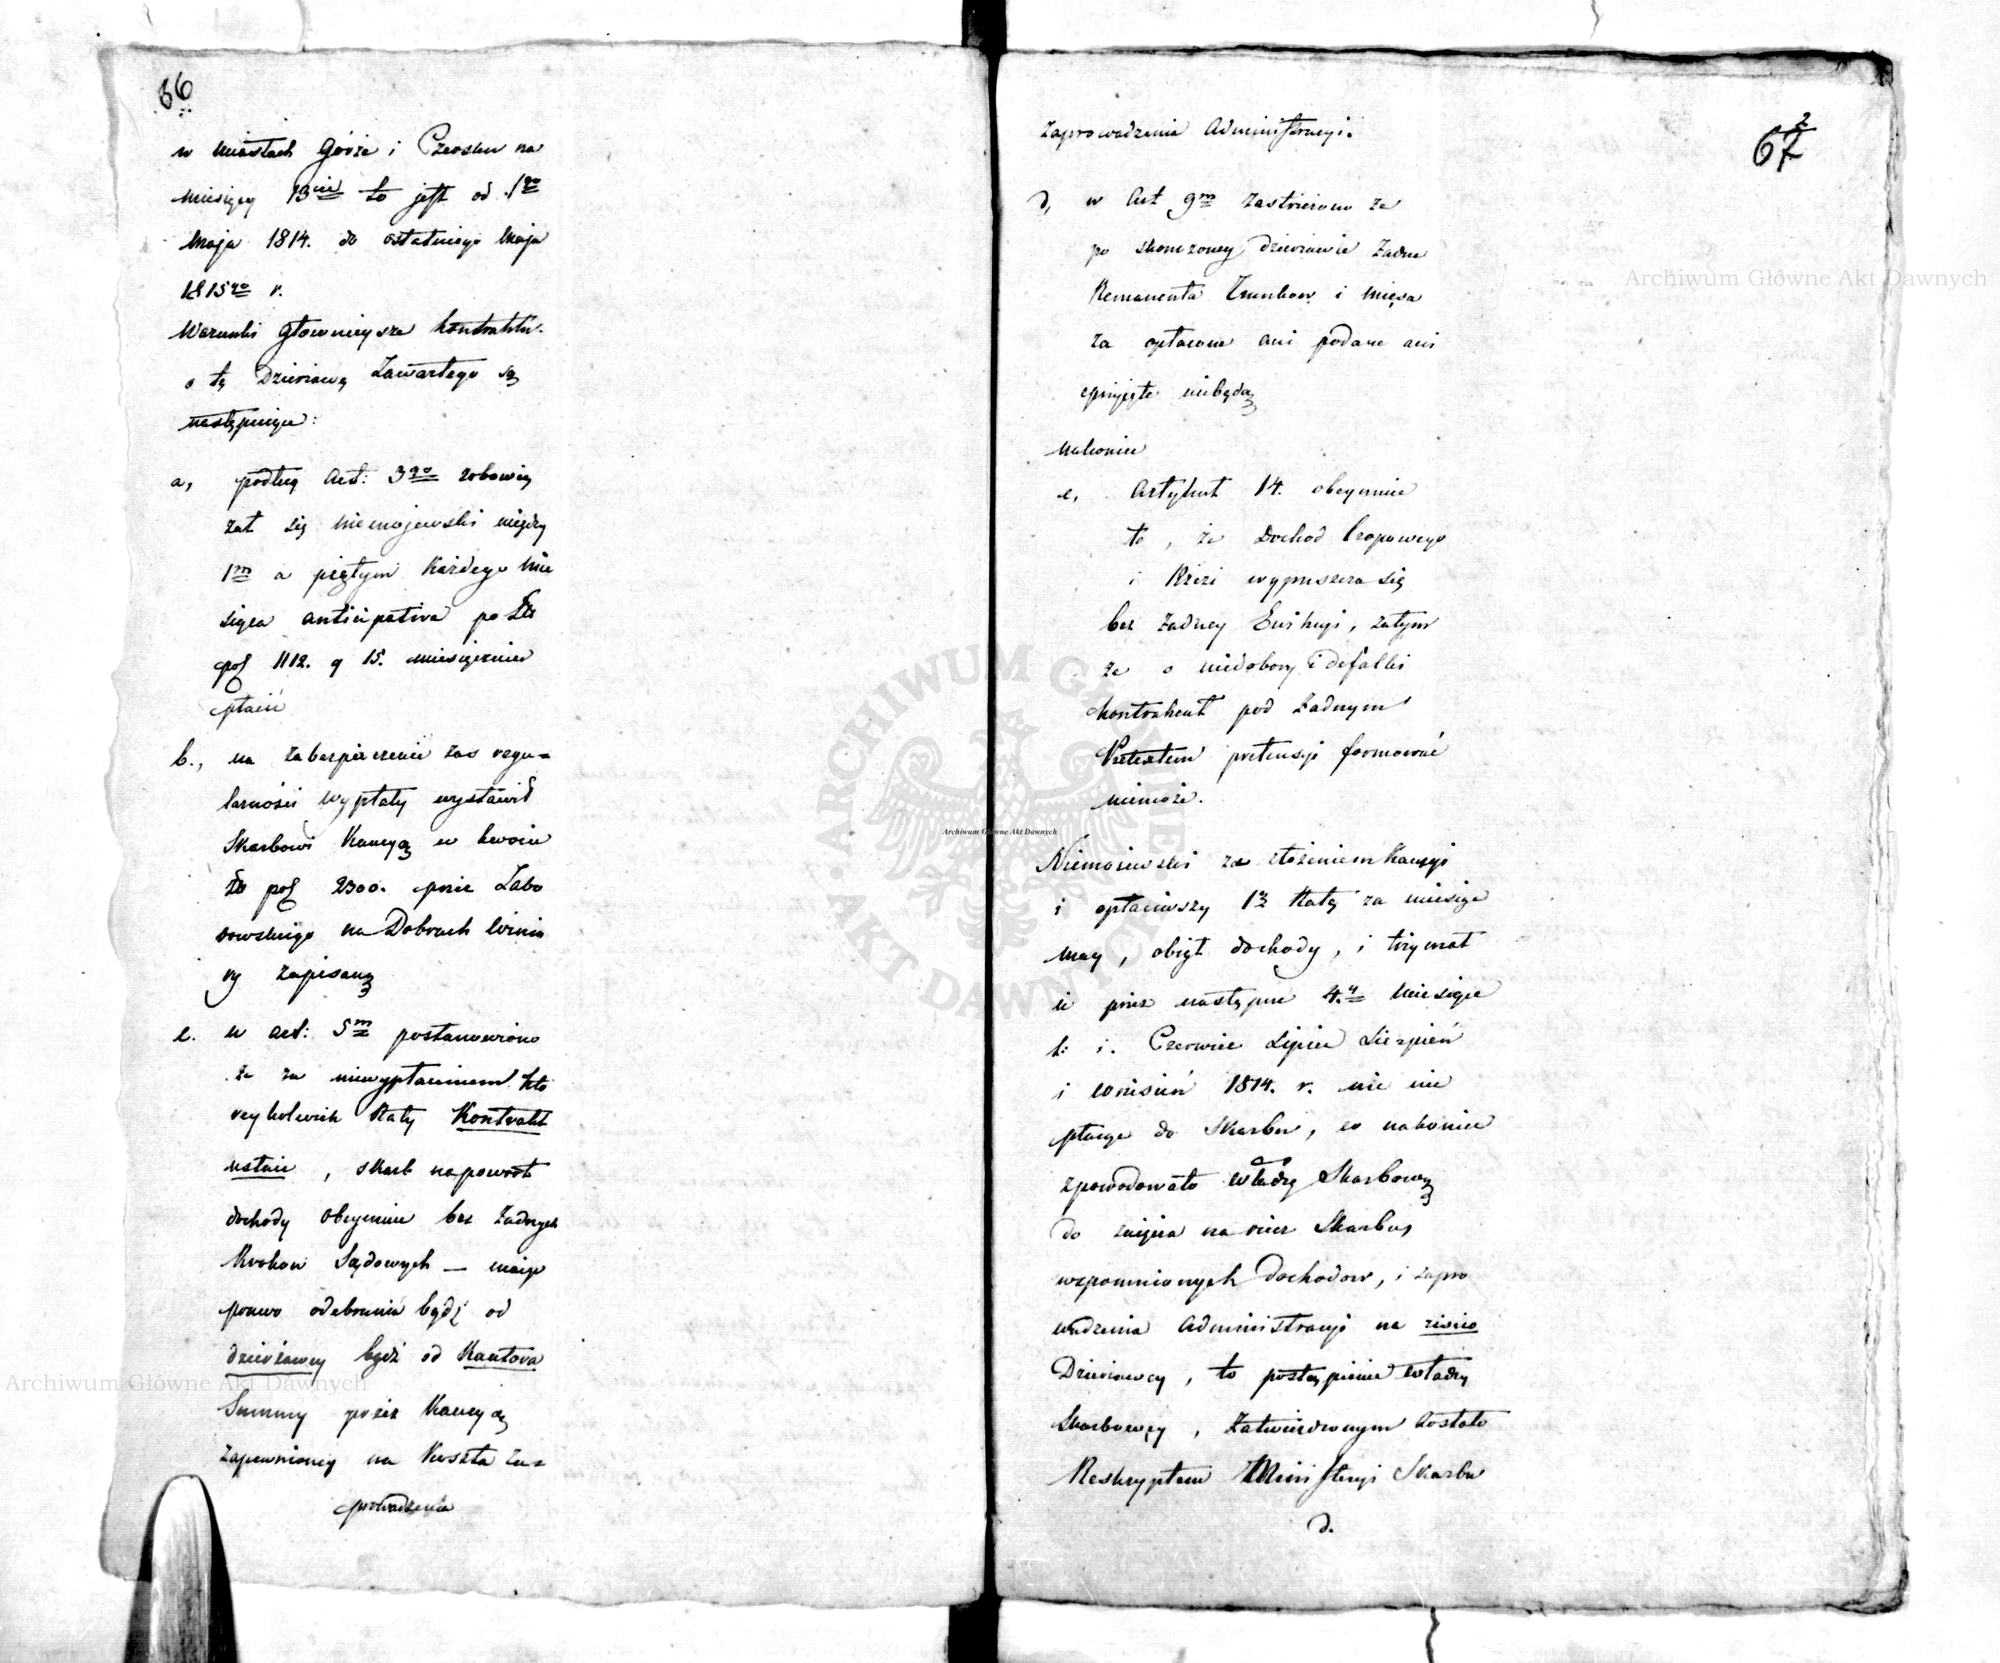 66
w miastach Górze i Czersku na
miesięcy 13cie to jest od 1go
Maja 1814. do ostatniego Maja
1815go r.
Warunki głownieysze kontraktu
o tę Dzierżawę Zawartego są
następuiące:
a, podług Art: 3go zobowią
zał się Niemojewski między
1m a piątym Każdego Mie
siąca anticipative po Złł
pol 1112. g 15. miesięcznie
płacić
b., na zabezpieczenie zas regu=
larności wypłaty wystawił
Skarbowi Kaucyą w kwocie
Złł pol 2300. przez Zabo
rowskiego na Dobrach Winia
ry zapisaną
c. w art: 5m postanowiono
że za niewypłaceniem któ
reykolwiek Raty Kontrakt
ustaie, skarb napowrót
dochody obeymie bez Żadnych
Krokow Sądowych — maiąc
prawo odebrania bądź od
dzierżawcy bądź od Kantora
Summy przez Kaucyą
Zapewnioney na Koszta Za=
prowadzenia
67
2
Zaprowadzenia Administracyi.
d, w Art 9m Zastrzeżono że
po skonczoney dzierżawie żadne
Remanenta Trunkow i mięsa
za opłacone ani podane ani
przyjęte niebędą
nakoniec
e, Artykuł 14. obeymuie
to, że Dochod Czopowego
i Rzezi wypuszcza się
bez żadney Ewikcyi, zatym
że o niedobory i defalki
kontrahent pod żadnym
Pretextem pretensyi formować
niemoże.
Niemojewski za złożeniem Kaucyi
i opłaciwszy 1ą Ratę za miesiąc
may, obiął dochody, i trzymał
ie przez następne 4.y Miesiące
t: i. Czerwiec Lipiec Sierpień
i wrzesień 1814. r. nic nie
płacąc do Skarbu, co nakoniec
spowodowało władzę Skarbową
do zaięcia na rzecz Skarbu
wspomnionych dochodow, i zapro
wadzenia Administracyi na risico
Dzierżawcy, to postąpienie władzy
Skarbowey, Zatwierdzonym zostało
Reskryptem Ministeryi Skarbu
d.
Archiwum Główne Akt Dawnych
Archiwum Główne Akt Dawnych
Archiwum Główne Akt Dawnych
ARCHIWUM GŁÓWNE
AKT DAWNYCH